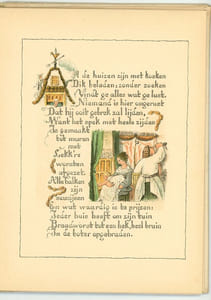 de huizen zijn met koeken
Dik beladen; zonder zoeken
Vindt ge alles wat ge lust.
Niemand is hier ongerust
Dat hij ooit gebrek zal lijden,
Want het spek met heele zijden
Is gemaakt
tot muren
met
Lekk're
worsten
afgezet.
Alle balken
zijn
En wat waardig is te prijzen:
Ieder huis heeft om zijn tuin
Braadworst tot een hek, heel bruin
In de boter opgebraden.